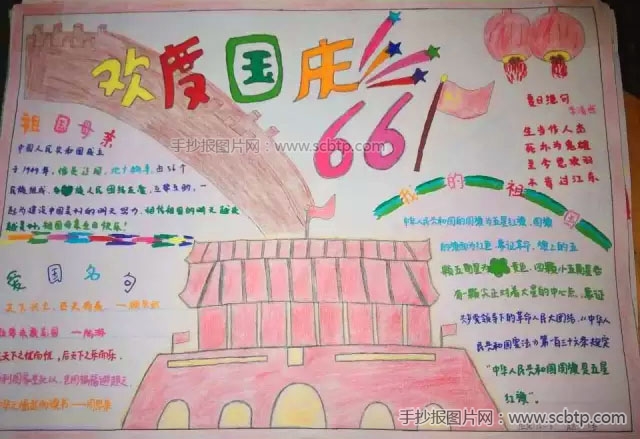 欢度国庆
66
手抄报图片网 - www.scbtp.com
夏日绝句
李清照
生当作人杰
死亦为鬼雄
至今思项羽
不肯过江东
祖国母亲
中国人民共和国成立
于1949年,
由56个
民族组成,
越美好,祖国母亲生日快乐!
爱国名句
天下兴亡,匹夫有责
位卑未敢忘国
天下之忧而忧,后天下之乐而乐.
我的祖国
中华人民共和国的国旗为五星红旗,国旗
的旗面为红色,象征革命,旗上的五
颗五角星为黄色,四颗小五角星各
有一颗尖正对着大星的中心点,象征
共产党领导下的革命人民大团结.《中华人
民共和国宪法》第一百三十六条规定
"中华人民共和国国旗是五星
红旗".
手抄报图片网:www.scbtp.com